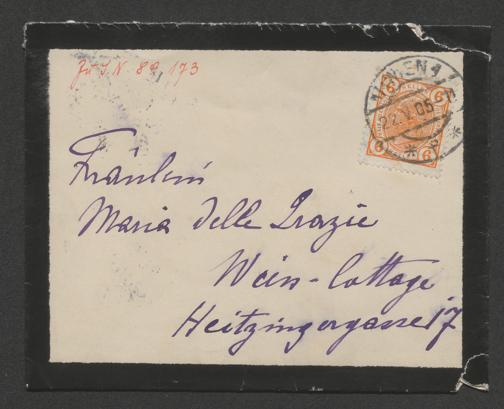 Zu I.N. 89.173
WIEN 1/1
22.V.05
6 6
6 6
Fräulein
Maria delle Grazie
Wein-Cottage
Heitzingergasse 17